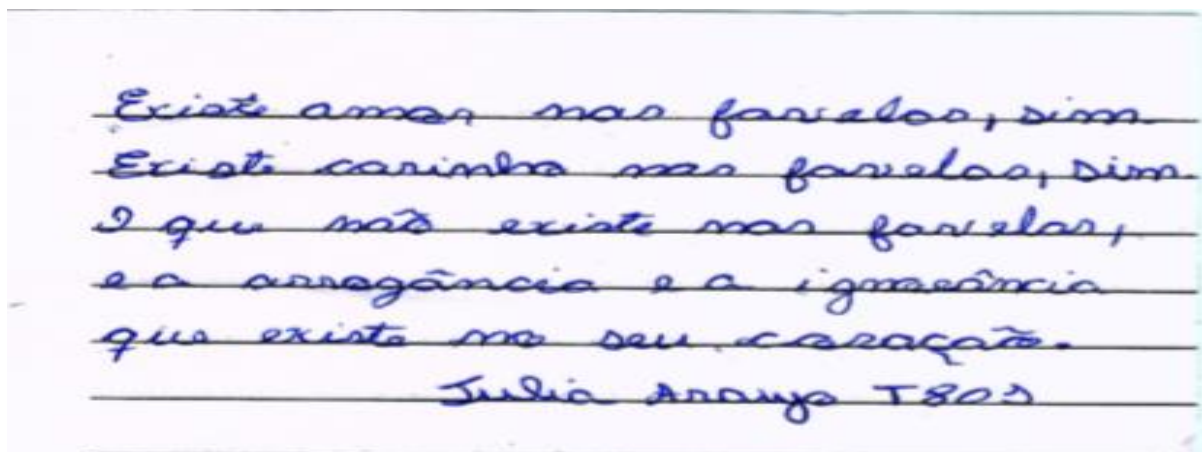 Existe amor nas favelas, sim.
Existe carinho nas favelas, sim.
O que não existe nas favelas,
e a arrogância e a ignorância
que existe no seu coração.
Julia Araujo T801